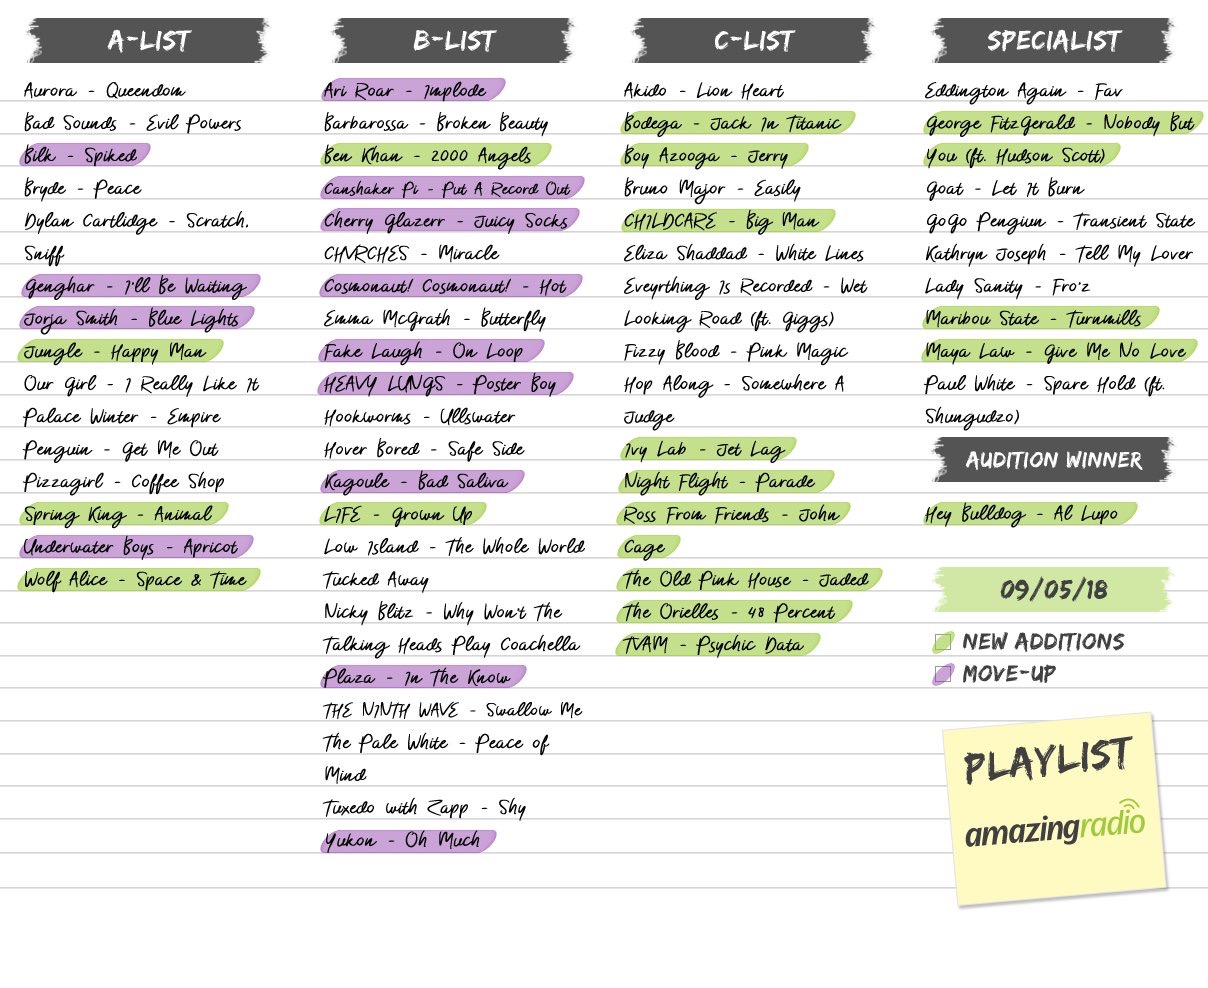 A-LIST
Aurora - Queendom
Bad Sounds - Evil Powers
Bilk - Spiked
Bryde - Peace
Dylan Cartlidge - Scratch,
Sniff
Genghar - I'll Be Waiting
Jorja Smith - Blue Lights
Jungle - Happy Man
Our Girl - I Really Like It
Palace Winter - Empire
Penguin - Get Me Out
Pizzagirl - Coffee Shop
Spring King - Animal
Underwater Boys - Apricot
Wolf Alice - Space & Time
B-LIST
Ari Roar - Implode
Barbarossa - Broken Beauty
Ben Khan - 2000 Angels
Canshaker Pi - Put A Record Out
Cherry Glazerr - Juicy Socks
CHVRCHES - Miracle
Cosmonaut! Cosmonaut! - Hot
Emma McGrath - Butterfly
Fake Laugh - On Loop
HEAVY LUNGS - Poster Boy
Hookworms - Ullswater
Hover Bored - Safe Side
Kagoule - Bad Saliva
LIFE - Grown Up
Low Island - The Whole World
Tucked Away
Nicky Blitz - Why Won't The
Talking Heads Play Coachella
Plaza - In The Know
THE NINTH WAVE - Swallow Me
The Pale White - Peace of
Mind
Tuxedo with Zapp - Shy
Yukon - Oh Much
C-LIST
Akido - Lion Heart
Bodega - Jack In Titanic
Boy Azooga - Jerry
Bruno Major - Easily
CHILDCARE - Big Man
Eliza Shaddad - White Lines
Eveyrthing Is Recorded - Wet
Looking Road (ft. Giggs)
Fizzy Blood - Pink Magic
Hop Along - Somewhere A
Judge
Ivy Lab - Jet Lag
Night Flight - Parade
Ross From Friends - John
Cage
The Old Pink House - Jaded
The Orielles - 48 Percent
TVAM - Psychic Data
SPECIALIST
Eddington Again - Fav
George FitzGerald - Nobody But
You (ft. Hudson Scott)
Goat - Let It Burn
GoGo Pengiun - Transient State
Kathryn Joseph - Tell My Lover
Lady Sanity - Fro'z
Maribou State - Turnmills
Maya Law - Give Me No Love
Paul White - Spare Hold (ft.
Shungudzo)
AUDITION WINNER
Hey Bulldog - Al Lupo
09/05/18
NEW ADDITIONS
MOVE-UP
PLAYLIST
amazingradio